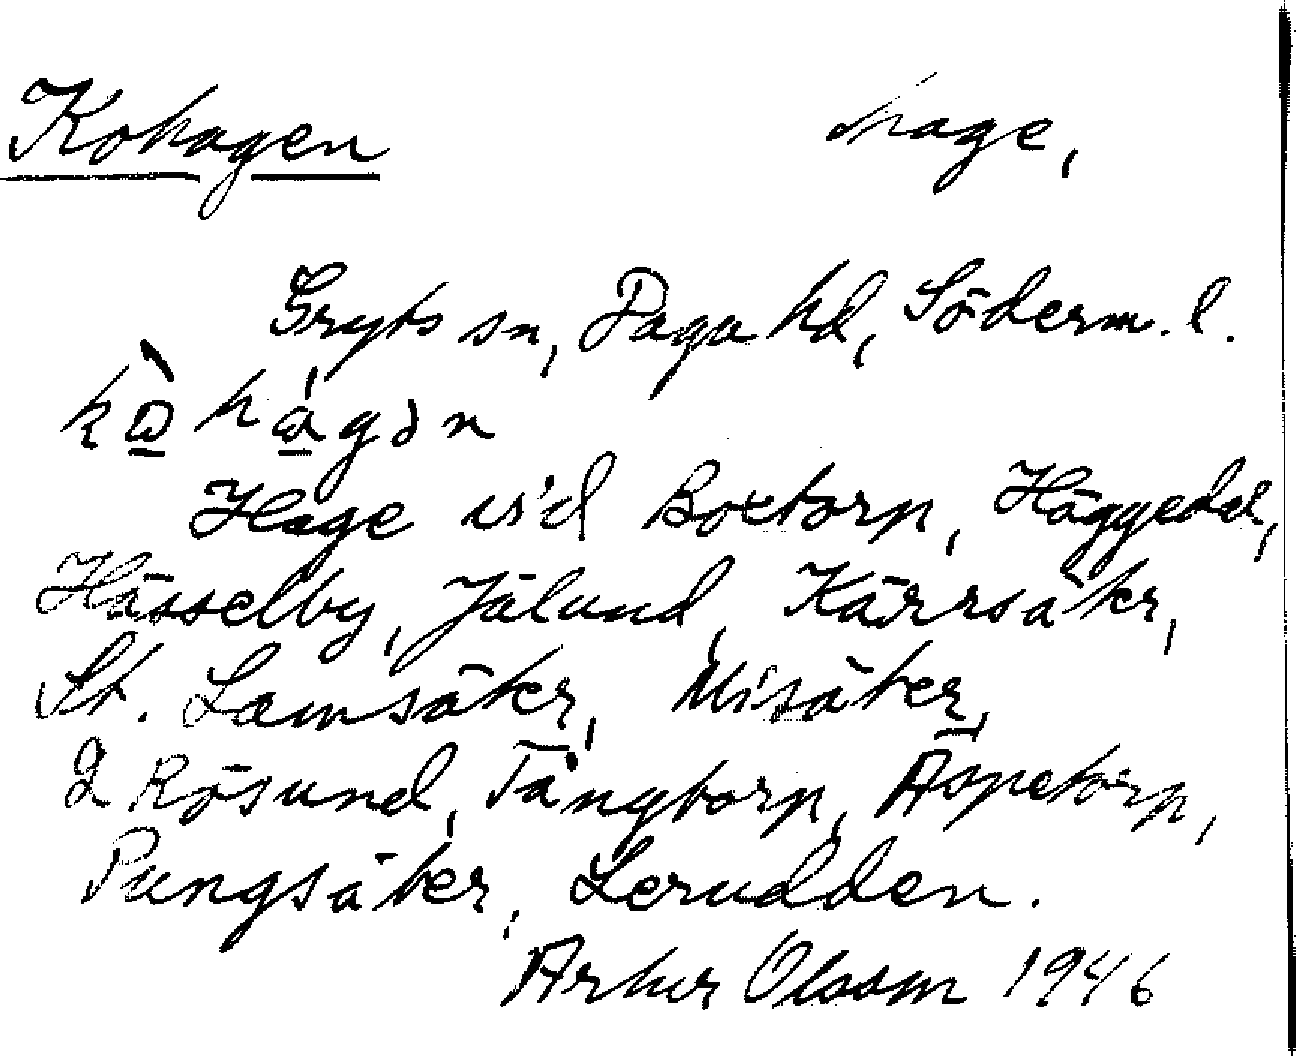 Kohagen hage,
Gryts sn, Daga hd, Söderm. l.
kὼ̱ hά̱gən
Hage vid Boxtorp, Häggedal,
Hässelby, Jälund, Kärrsäkr,
St. Lamsäker, Misäker,
Rösund, Tängtorp, Äspetorp,
Pungsäker, Lerudden.
Artur Olsson 1946